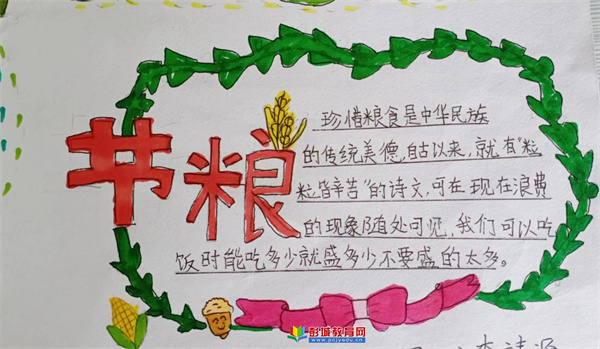 节粮
珍惜粮食是中华民族
的传统美德,自古以来,就有"粒
粒皆辛苦"的诗文,可在现在浪费
的现象随处可见,我们可以吃
饭时能吃多少就盛多少不要盛的太多。
彭城教育网
www.pcjyedu.cn